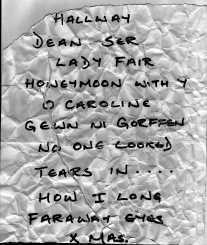 HALLWAY
DEAN SER
LADY FAIR
HONEYMOON WITH Y
O CAROLINE
GEWN NI GORFFEN
NO ONE LOOKED
TEARS IN....
HOW I LONG
FARAWAY EYES
X MAS.